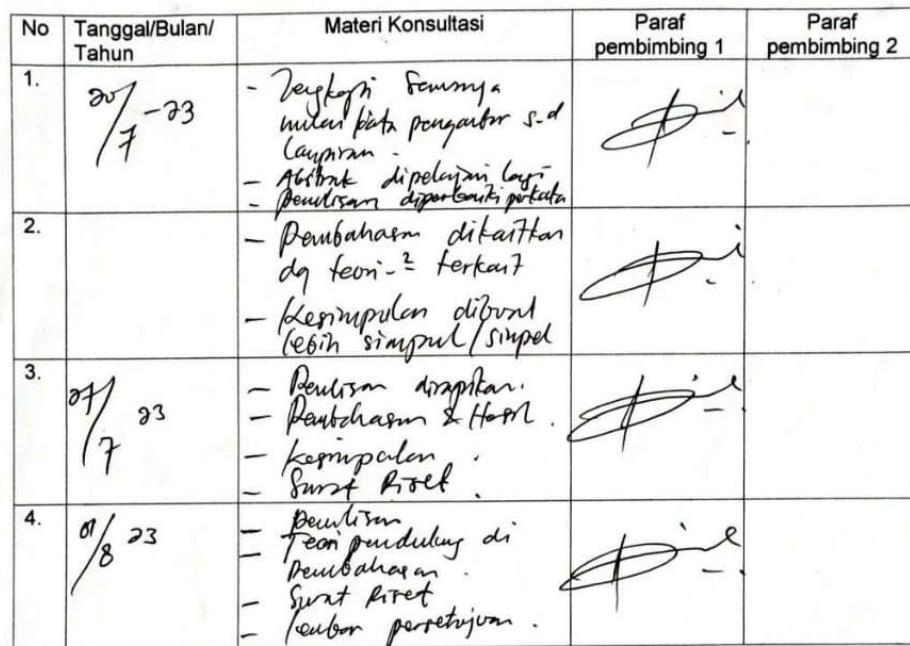 No Tanggal/Bulan/ Materi Konsultasi Paraf Paraf
Tahun pembimbing 1 pembimbing 2
1. 20/7-23
- Lengkapi semunya
mulai kata pengantar s.d
Lampiran.
- Abstrak dipelajari lagi
- Penulisan diperbaiki perkata
2.
- Pembahasan dikaitkan
dg teori-2 terkait
- Kesimpulan dibuat
lebih simpul/simpel
3. 27/7 23
- Penulisan dirapikan.
- Pembahasan & Hasil.
- Kesimpulan.
- Surat Riset.
4. 01/8 23
- Penulisan
- Teori pendukung di
Pembahasan.
- Surat Riset
- lembar persetujuan.